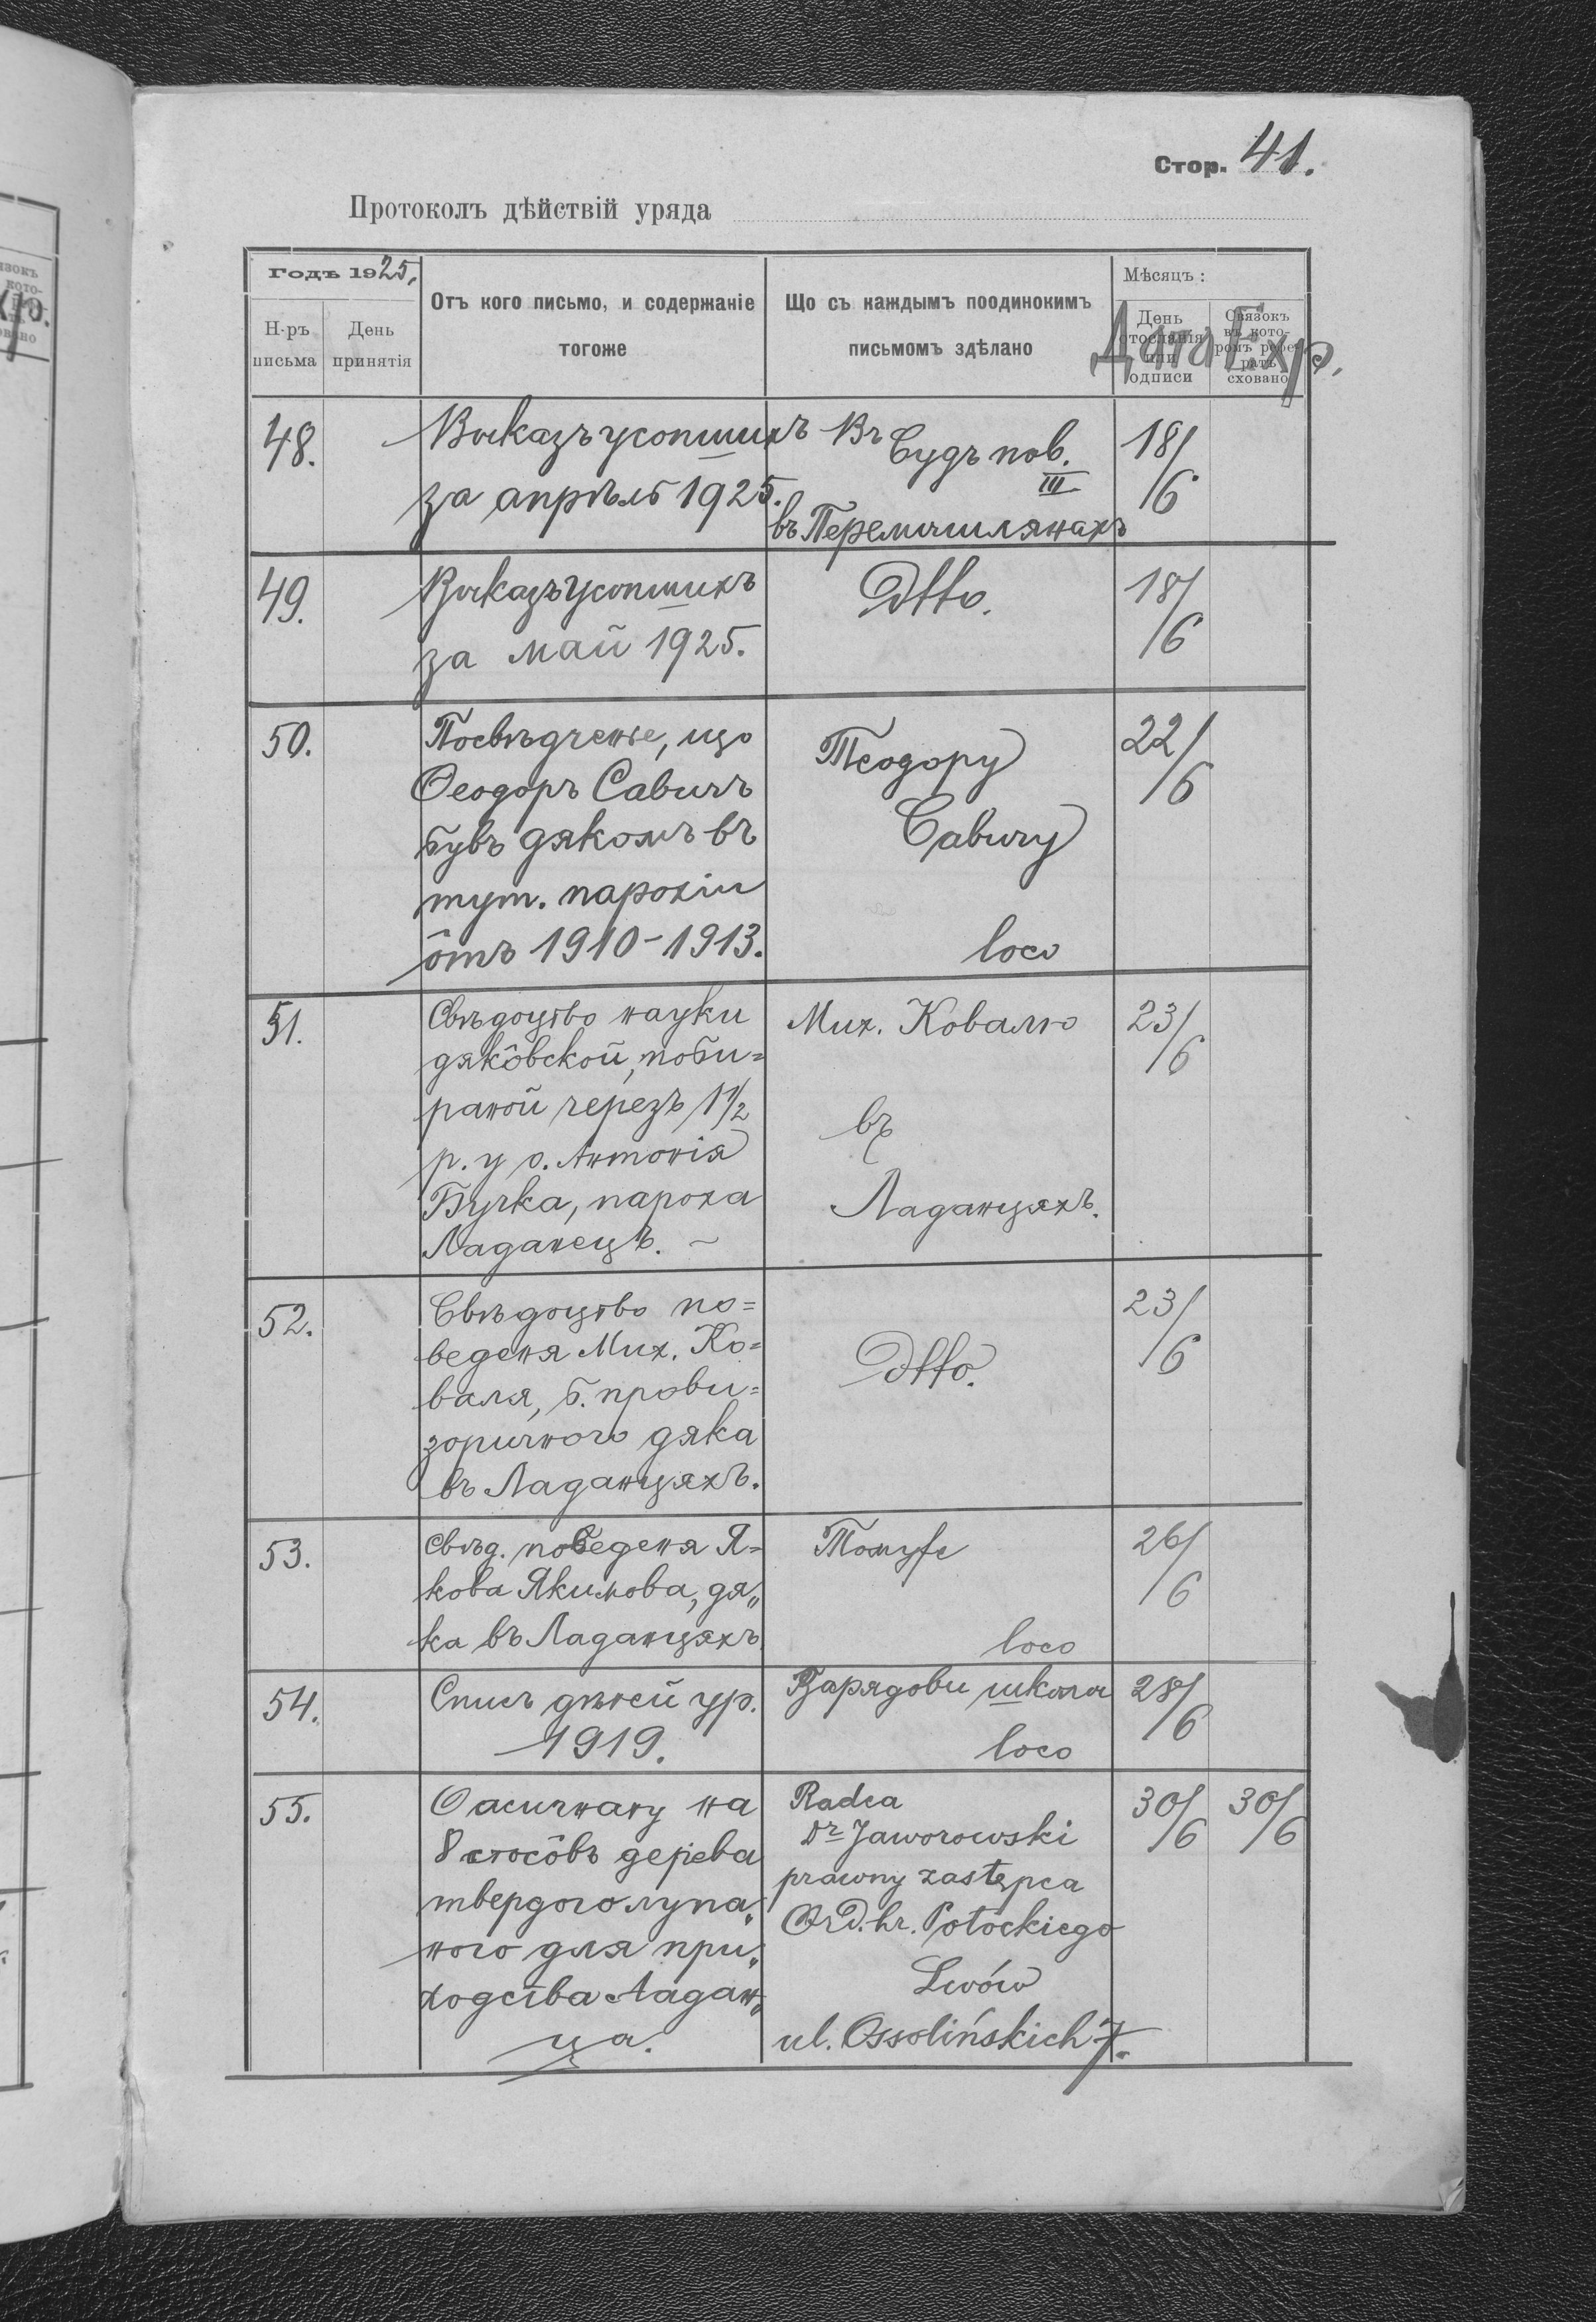 Стор. 41.
Протоколъ дѣйствій уряда
Годъ 1925.
Н-ръ письма
День принятія
Отъ кого письмо, и содержаніе
тогоже
Що съ каждымъ поодинокимъ
письмомъ здѣлано
Мѣсяцъ:
День
отосланія
или
подписи
Связокъ
въ кото-
ромъ рефе-
ратъ
сховано
Дата Exp.
48.
Выказъ усопшихъ
за апрѣль 1925.
Въ Судъ пов.
III
въ Перемышлянахъ
18/6
49.
Выказъ усопшихъ
за май 1925.
Dtto.
18/6
50.
Посвѣдченье, що
Ѳеодоръ Савичъ
бувъ дякомъ въ
тут. парохіи
ôтъ 1910-1913.
Теодору
Савичу
loco
22/6
51.
Свѣдоцтво науки
дякôвской, поби=
раной через 1 1/2
р. у о. Антонія
Бучка, пароха
Ладанецъ. ~
Мих. Ковалю
въ
Ладанцяхъ.
23/6
52.
Свѣдоцтво по=
веденя Мих. Ко=
валя, б. прови=
зоричного дяка
въ Ладанцяхъ.
Dtto.
23/6
53.
Свѣд. поведеня Я=
кова Якимова, дя„
ка въ Ладанцяхъ
Томуже
loco
26/6
54.
Списъ дѣтей ур.
1919.
Зарядови школы
loco
28/6
55.
О асигнату на
8 стосôвъ дерева
твердого лупа„
ного для при„
ходства Ладан„
ца.
Radca
Dr Jaworowski
prawny zastępca
Ord. hr. Potockiego
Lwów
ul. Ossolińskich 7.
30/6
30/6